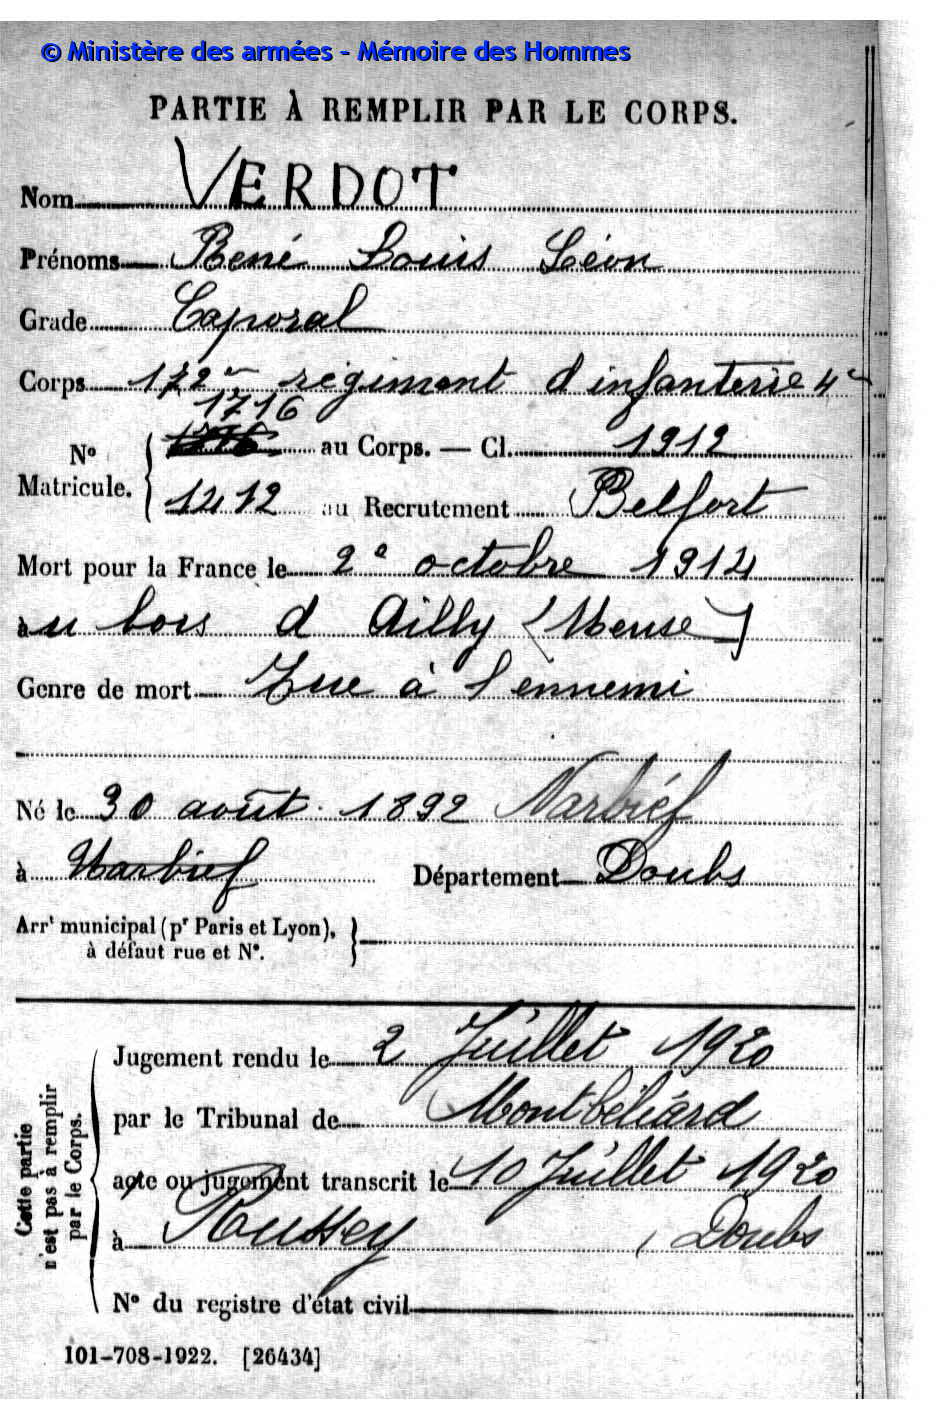 © Ministère des armées - Mémoire des Hommes
PARTIE À REMPLIR PAR LE CORPS.
Nom VERDOT
Prénoms René Louis Léon
Grade Caporal
Corps 172e régiment d infanterie 4e
1716
Nº Matricule. au Corps. — Cl. 1912
1412 au Recrutement Belfort
Mort pour la France le 2e octobre 1914
au bois d Ailly (Meuse)
Genre de mort Tue à l ennemi
Né le 30 août 1892 Narbief
à Narbief Département Doubs
Arrt municipal (pr Paris et Lyon),
à défaut rue et Nº.
Cette partie
n'est pas à remplir
par le Corps.
Jugement rendu le 2 Juillet 1920
par le Tribunal de Montbéliard
acte ou jugement transcrit le 10 Juillet 1920
à Roussey, Doubs
Nº du registre d'état civil
101-708-1922. [26434]